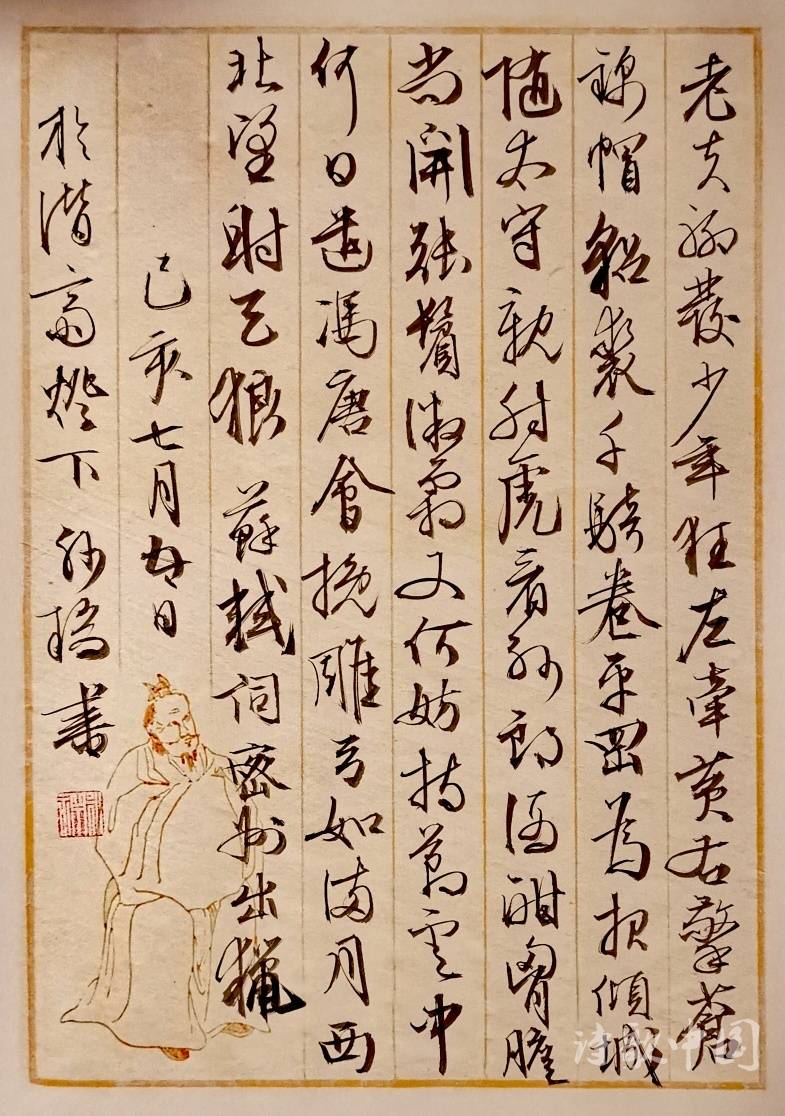 老夫聊發少年狂左牽黄右擎蒼
錦帽貂裘千騎卷平岡為报傾城
随太守親射虎看孙郎酒酣胷膽
尚開張鬢微霜又何妨持節雲中
何日遣馮唐會挽雕弓如满月西
北望射天狼 蘇軾词密州出獵
己亥七月日
於潛斋燈下書
诗歌中国